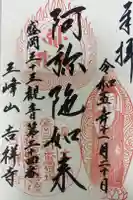 奉拝
令和五年十一月二十日
阿弥陀如来
盛岡三十三観音第二十四番
三峰山 吉祥寺